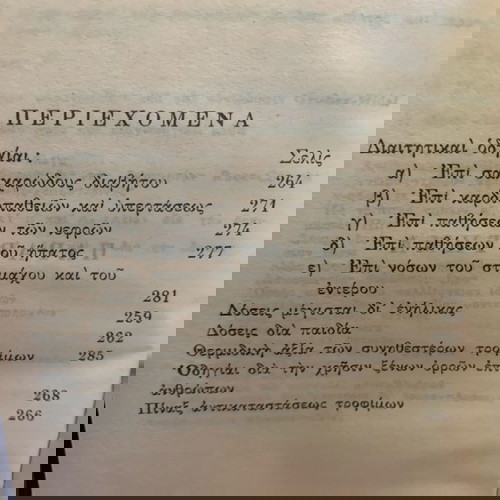 ΠΕΡΙΕΧΟΜΕΝΑ
Διαιτητικαὶ ὁδηγίαι: Σελὶς
α) Ἐπὶ σακχαρώδους διαβήτου 264
β) Ἐπὶ καρδιοπαθειῶν καὶ ὑπερτάσεως 271
γ) Ἐπὶ παθήσεων τῶν νεφρῶν 274
δ) Ἐπὶ παθήσεων τοῦ ἥπατος 277
ε) Ἐπὶ νόσων τοῦ στομάχου καὶ τοῦ
ἐντέρου 281
Δόσεις μέγισται δι᾽ ἐνήλικας 259
Δόσεις διὰ παιδιά 262
Θερμιδικὴ ἀξία τῶν συνηθεστέρων τροφίμων 285
Ὁδηγίαι διὰ τὴν χρῆσιν ξένων ὀρρῶν ἐπὶ
ἀνθρώπων 268
Πίναξ ἀντικαταστάσεως τροφίμων 266